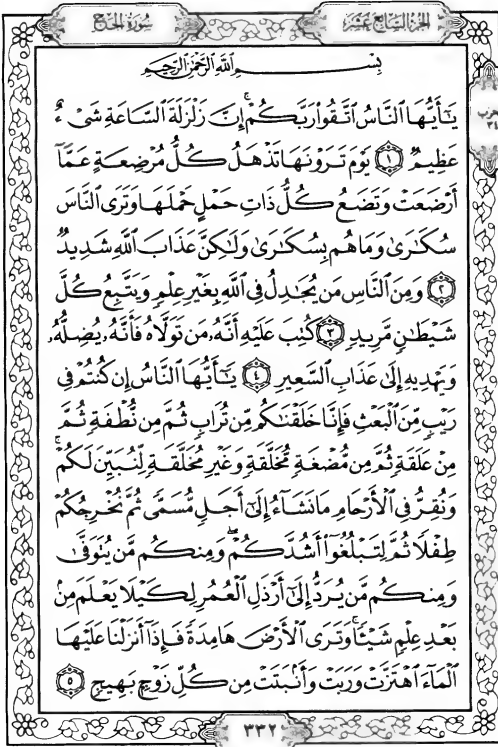 سُورَةُ الحَجّ
الجُزْءُ السَّابِعُ عَشَرَ
بِسْمِ اللَّهِ الرَّحْمَٰنِ الرَّحِيمِ
يَٰٓأَيُّهَا ٱلنَّاسُ ٱتَّقُوا۟ رَبَّكُمْ ۚ إِنَّ زَلْزَلَةَ ٱلسَّاعَةِ شَىْءٌ
عَظِيمٌ ١ يَوْمَ تَرَوْنَهَا تَذْهَلُ كُلُّ مُرْضِعَةٍ عَمَّآ
أَرْضَعَتْ وَتَضَعُ كُلُّ ذَاتِ حَمْلٍ حَمْلَهَا وَتَرَى ٱلنَّاسَ
سُكَٰرَىٰ وَمَا هُم بِسُكَٰرَىٰ وَلَٰكِنَّ عَذَابَ ٱللَّهِ شَدِيدٌ
٢ وَمِنَ ٱلنَّاسِ مَن يُجَٰدِلُ فِى ٱللَّهِ بِغَيْرِ عِلْمٍ وَيَتَّبِعُ كُلَّ
شَيْطَٰنٍ مَّرِيدٍ ٣ كُتِبَ عَلَيْهِ أَنَّهُۥ مَن تَوَلَّاهُ فَأَنَّهُۥ يُضِلُّهُۥ
وَيَهْدِيهِ إِلَىٰ عَذَابِ ٱلسَّعِيرِ ٤ يَٰٓأَيُّهَا ٱلنَّاسُ إِن كُنتُمْ فِى
رَيْبٍ مِّنَ ٱلْبَعْثِ فَإِنَّا خَلَقْنَٰكُم مِّن تُرَابٍ ثُمَّ مِن نُّطْفَةٍ ثُمَّ
مِنْ عَلَقَةٍ ثُمَّ مِن مُّضْغَةٍ مُّخَلَّقَةٍ وَغَيْرِ مُخَلَّقَةٍ لِّنُبَيِّنَ لَكُمْ ۚ
وَنُقِرُّ فِى ٱلْأَرْحَامِ مَا نَشَآءُ إِلَىٰٓ أَجَلٍ مُّسَمًّى ثُمَّ نُخْرِجُكُمْ
طِفْلًا ثُمَّ لِتَبْلُغُوٓا۟ أَشُدَّكُمْ ۖ وَمِنكُم مَّن يُتَوَفَّىٰ
وَمِنكُم مَّن يُرَدُّ إِلَىٰٓ أَرْذَلِ ٱلْعُمُرِ لِكَيْلَا يَعْلَمَ مِنۢ
بَعْدِ عِلْمٍ شَيْـًٔا ۚ وَتَرَى ٱلْأَرْضَ هَامِدَةً فَإِذَآ أَنزَلْنَا عَلَيْهَا
ٱلْمَآءَ ٱهْتَزَّتْ وَرَبَتْ وَأَنۢبَتَتْ مِن كُلِّ زَوْجٍۭ بَهِيجٍ ٥
٣٣٢